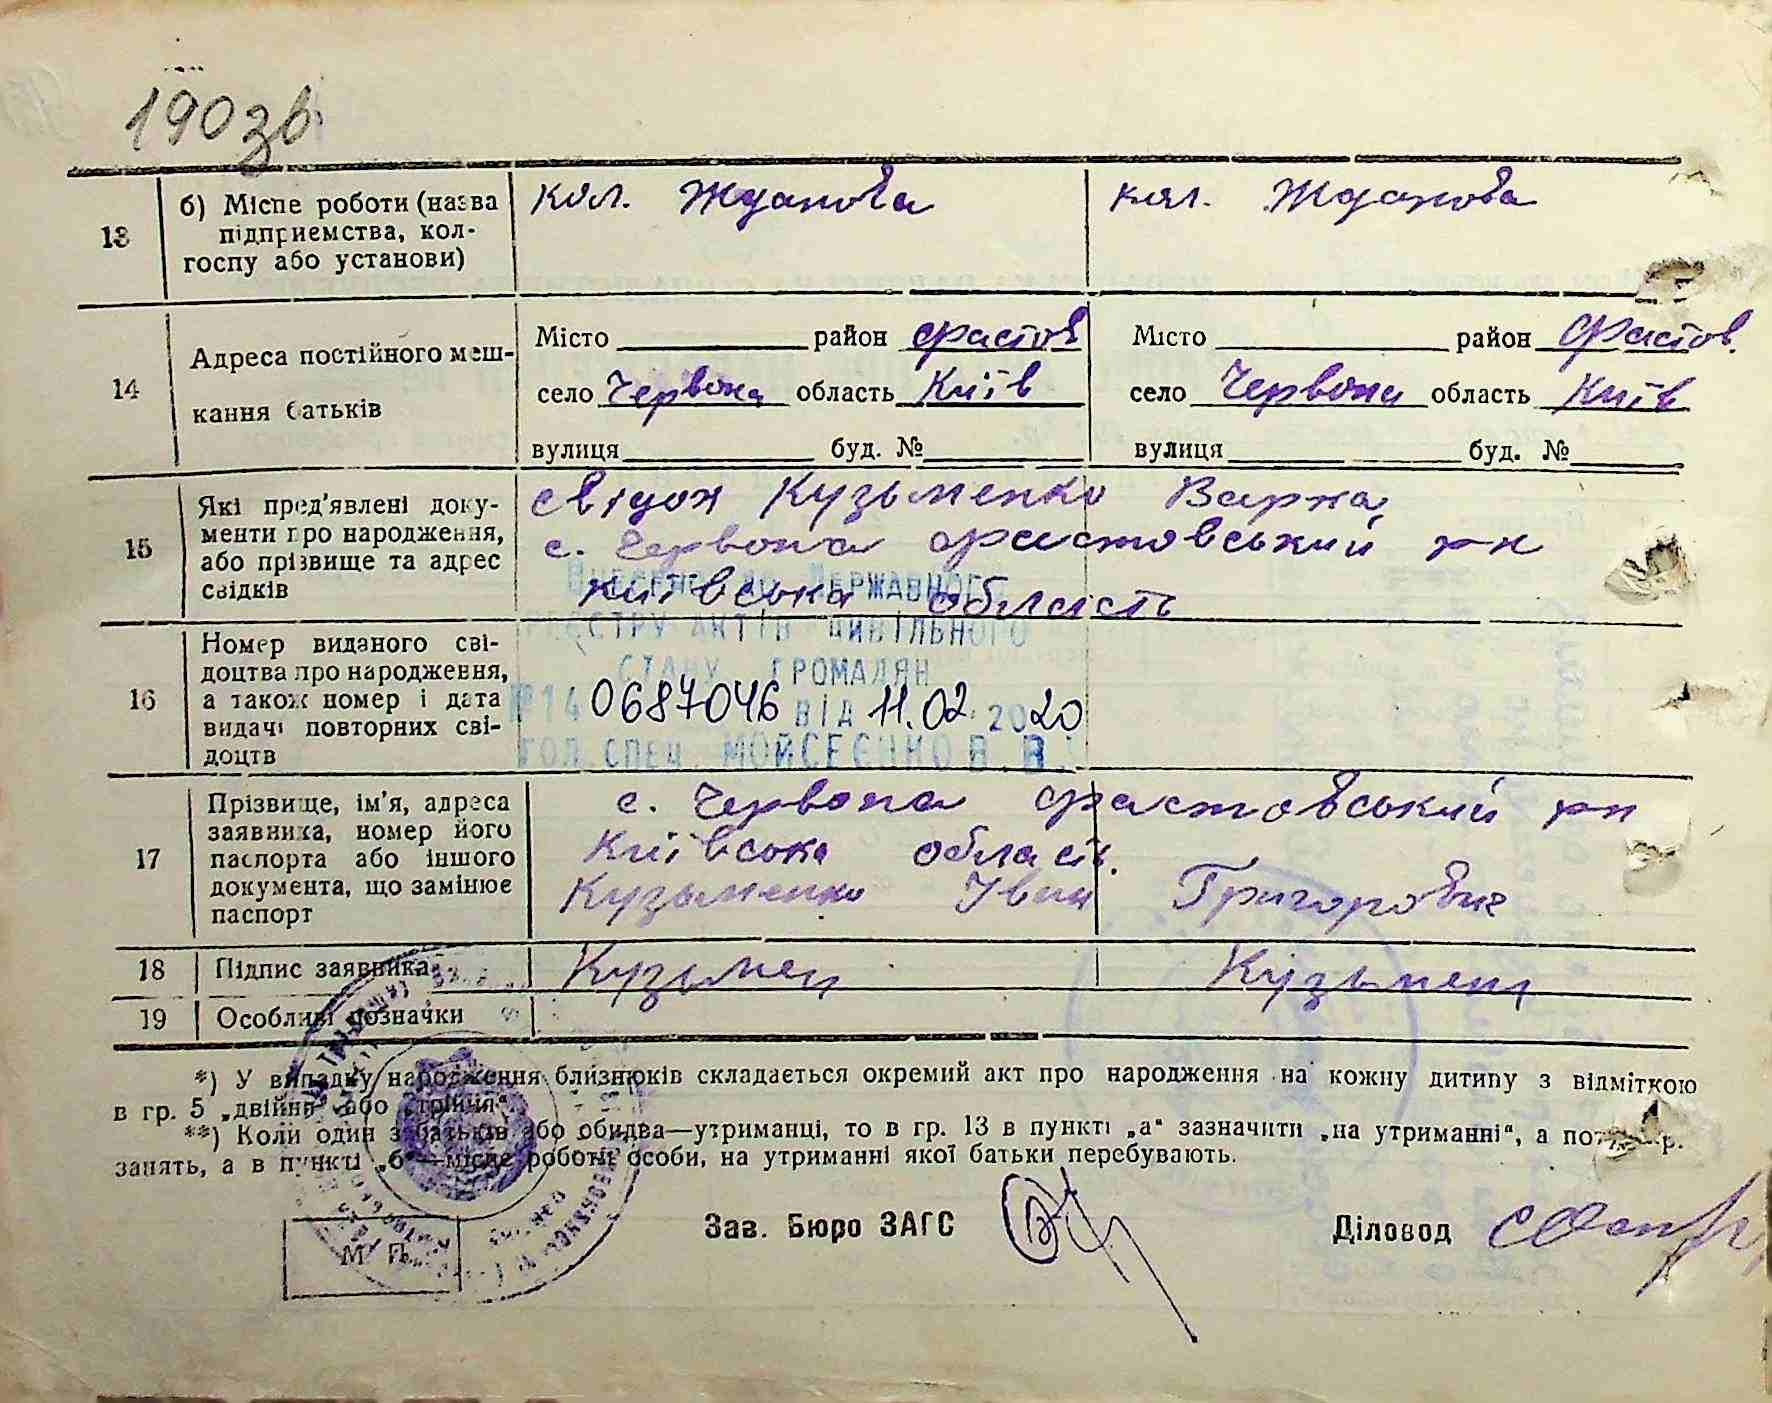 190 зв.
13 б) Місце роботи (назва підприємства, колгоспу або установи)
кол. Жданова
кол. Жданова
14 Адреса постійного мешкання батьків
Місто район Фастов
село Червона область Київ
вулиця буд. №
Місто район Фастов.
село Червона область Київ
вулиця буд. №
15 Які пред'явлені документи про народження, або прізвище та адрес свідків
свідок Кузьменко
с. Червона Фастовський р-н
Київська область
16 Номер виданого свідоцтва про народження, а також номер і дата видачі повторних свідоцтв
Внесено до Державного
реєстру актів цивільного
стану громадян
№ 14 0687046 від 11.02.2020
гол. спец. Мойсеєнко В. В.
17 Прізвище, ім'я, адреса заявника, номер його паспорта або іншого документа, що замінює паспорт
с. Червона Фастовський р-н
Київська область.
Кузьменко Іван Григорович
18 Підпис заявника
Кузьмен
Кузьмен
19 Особливі позначки
*) У випадку народження близнюків складається окремий акт про народження на кожну дитину з відміткою
в гр. 5 „двійня“ або „трійня“.
**) Коли один з батьків або обидва—утриманці, то в гр. 13 в пункті „а“ зазначити „на утриманні“, а
занять, а в пункті „б“—місце роботи особи, на утриманні якої батьки перебувають.
Зав. Бюро ЗАГС
Діловод
М. П.